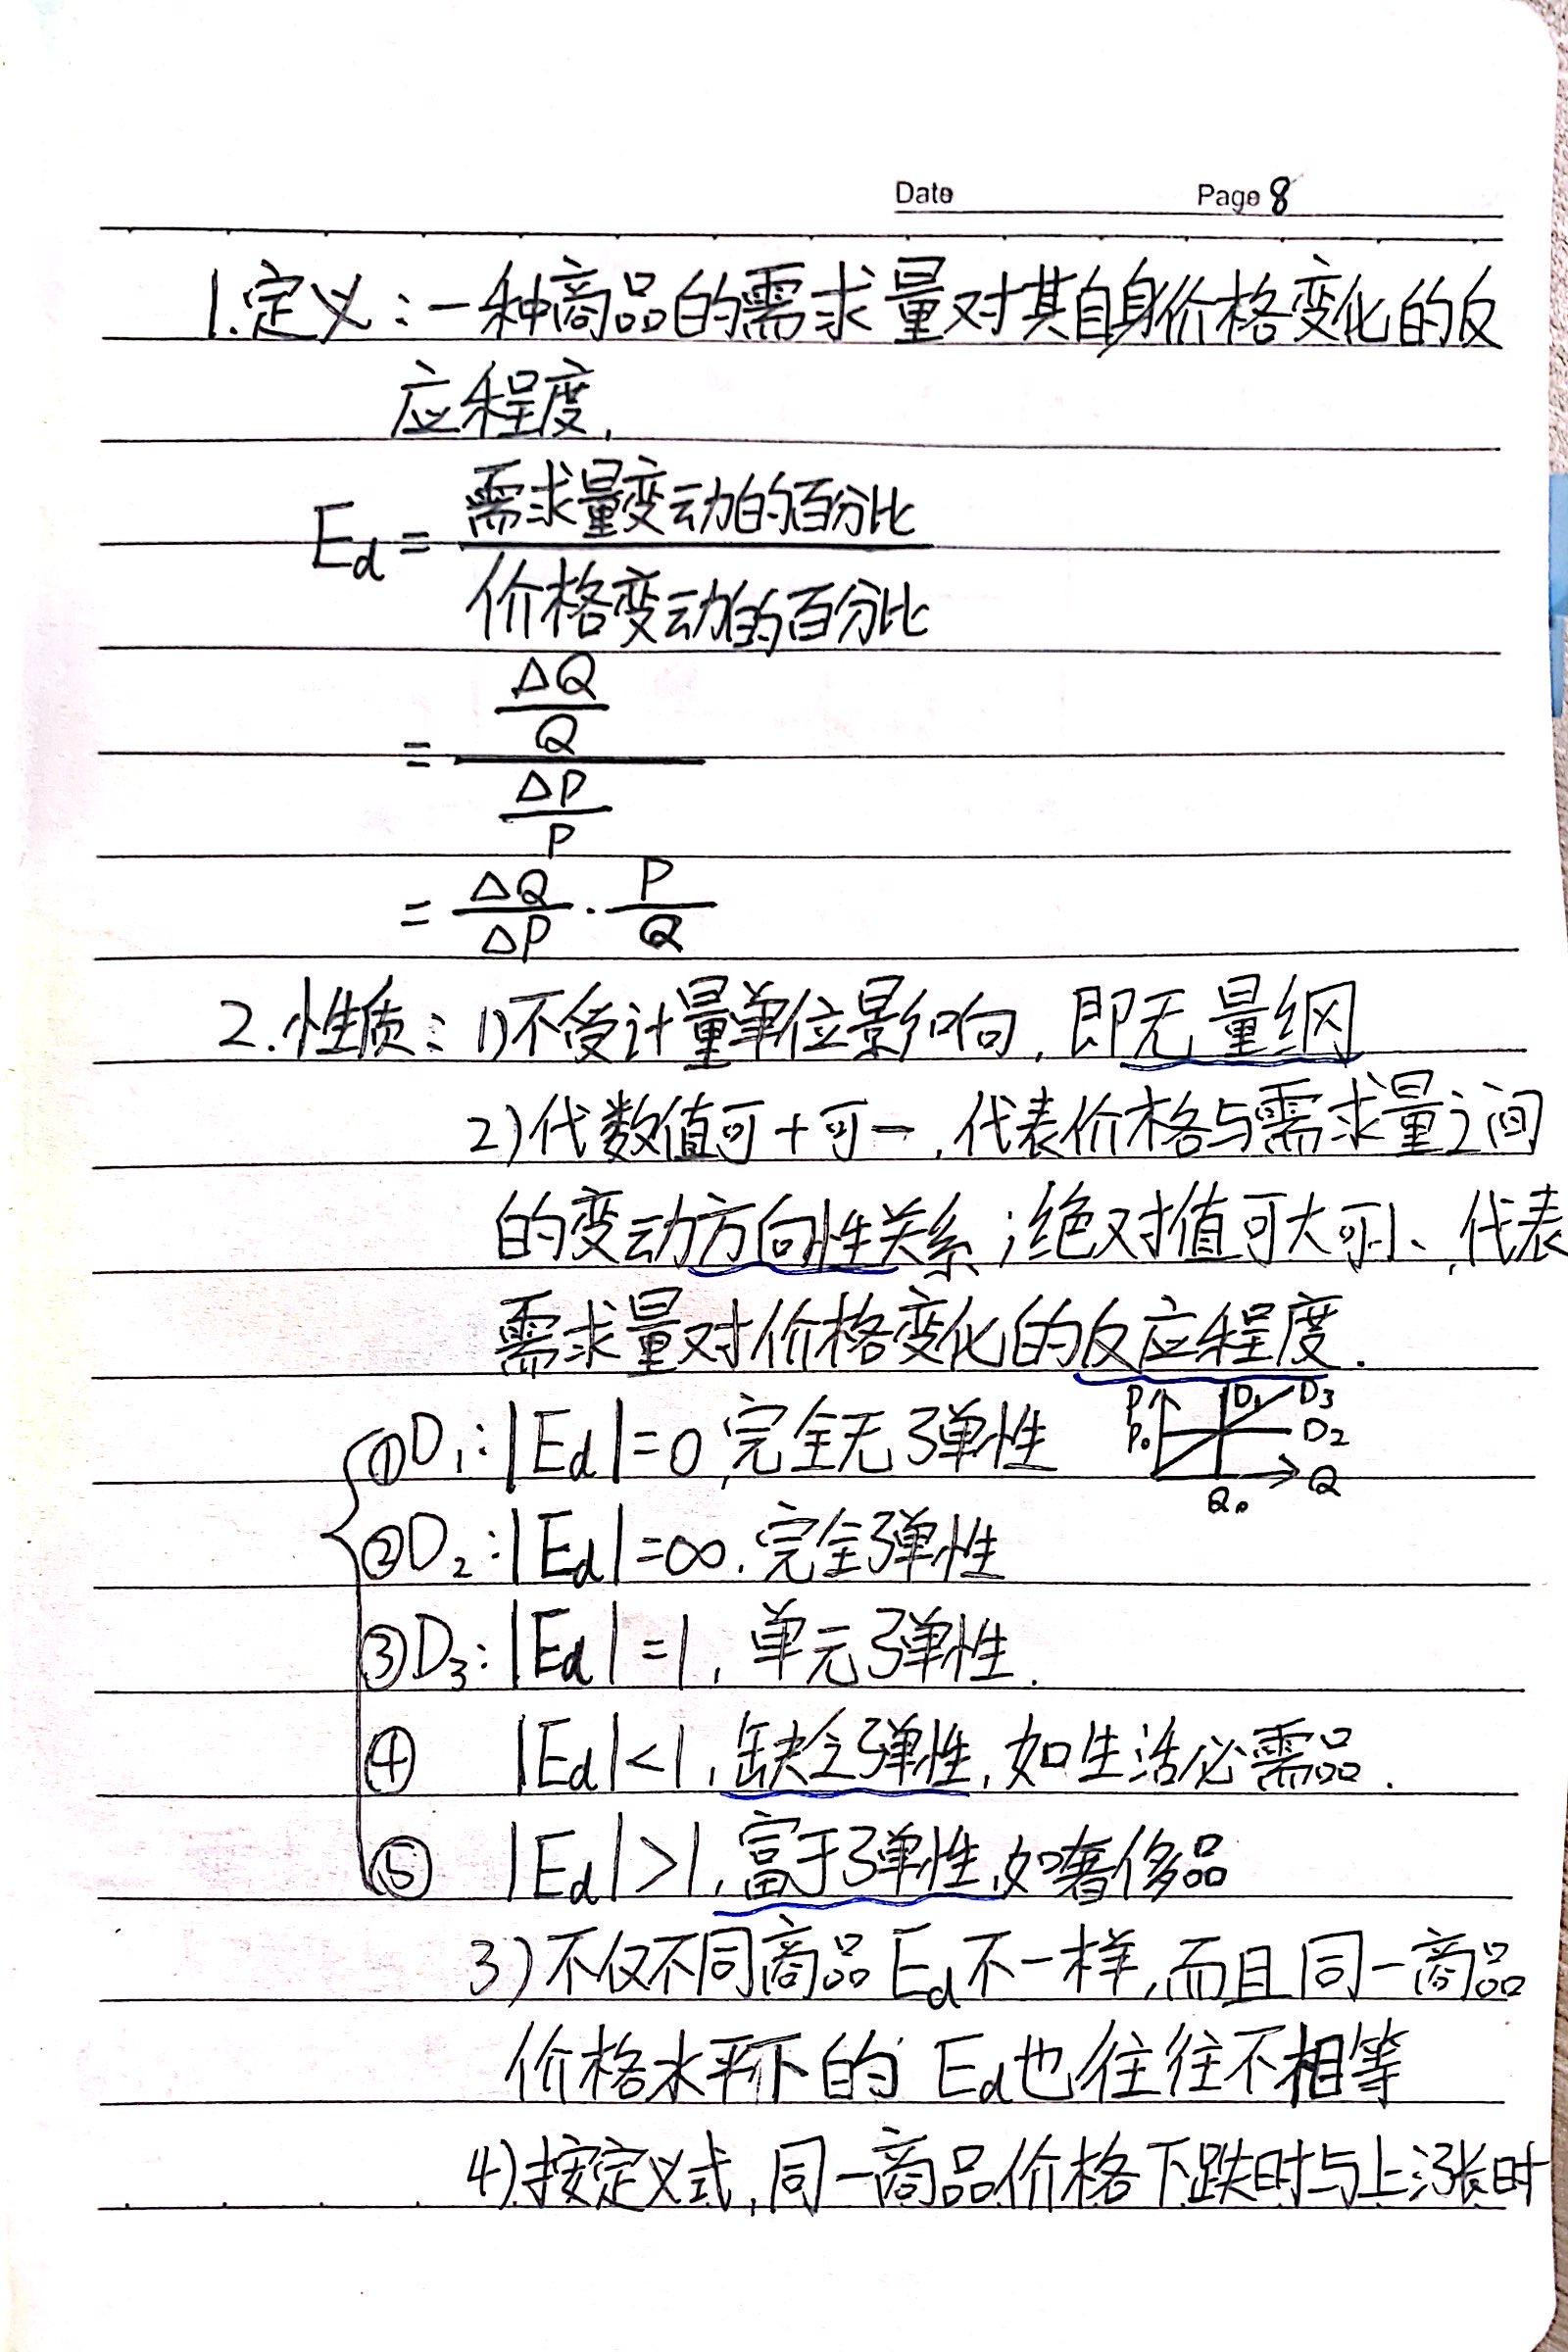 Date Page 8
1.定义:一种商品的需求量对其自身价格变化的反
应程度.
Ed = 需求量变动的百分比
价格变动的百分比
= ΔQ/Q
ΔP/P
= ΔQ/ΔP · P/Q
2.性质:1)不受计量单位影响,即无量纲
2)代数值可+可-,代表价格与需求量之间
的变动方向性关系;绝对值可大可小,代表
需求量对价格变化的反应程度.
P D1 D3
P0 D2
①D1:|Ed|=0,完全无弹性
Q0 Q
②D2:|Ed|=∞.完全弹性
③D3:|Ed|=1,单元弹性.
④ |Ed|<1,缺乏弹性,如生活必需品.
⑤ |Ed|>1,富于弹性,如奢侈品
3)不仅不同商品Ed不一样,而且同一商品
价格水平下的Ed也往往不相等
4)按定义式,同一商品价格下跌时与上涨时